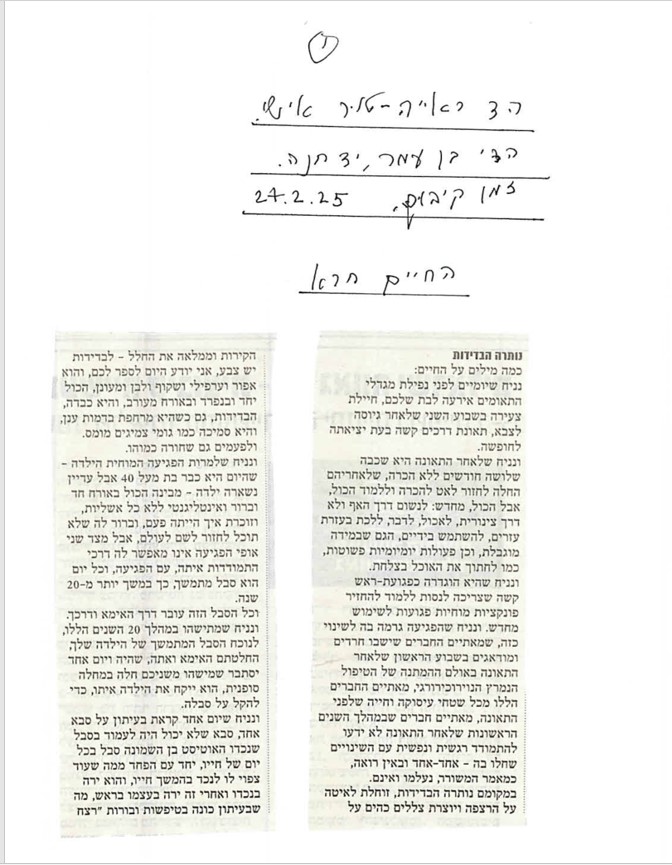 1
הד ראייה-טליר אישי.
הדי בן עמר, יד חנה.
זמן קיבוץ, 27.2.25
החיים חרא
נותרה הבדידות
כמה מילים על החיים:
נניח שיומיים לפני נפילת מגדלי
התאומים אירעה לבת שלכם, חיילת
צעירה בשבוע השני שלאחר גיוסה
לצבא, תאונת דרכים קשה בעת יציאתה
לחופשה.
ונניח שלאחר התאונה היא שכבה
שלושה חודשים ללא הכרה, שלאחריהם
החלה לחזור לאט להכרה וללמוד הכול,
אבל הכול, מחדש: לנשום דרך האף ולא
דרך צינורית, לאכול, לדבר, ללכת בעזרת
עזרים, להשתמש בידיים, הגם שבמידה
מוגבלת, וכן פעולות יומיומיות פשוטות,
כמו לחתוך את האוכל בצלחת.
ונניח שהיא הוגדרה כפגועת-ראש
קשה שצריכה לנסות ללמוד להחזיר
פונקציות מוחיות פגועות לשימוש
מחדש. ונניח שהפגיעה גרמה בה לשינוי
כזה, שמאתיים החברים שישבו חרדים
ומודאגים בשבוע הראשון שלאחר
התאונה באולם ההמתנה של הטיפול
הנמרץ הנוירוכירורגי, מאתיים החברים
הללו מכל שטחי עיסוקה וחייה שלפני
התאונה, מאתיים חברים שבמהלך השנים
הראשונות שלאחר התאונה לא ידעו
להתמודד רגשית ונפשית עם השינויים
שחלו בה – אחד-אחד ובאין רואה,
כמאמר המשורר, נעלמו ואינם.
במקומם נותרה הבדידות, זוחלת לאיטה
על הרצפה ויוצרת צללים כהים על
הקירות וממלאה את החלל – לבדידות
יש צבע, אני יודע היום לספר לכם, והוא
אפור וערפילי ושקוף ולבן ומעונן, הכול
יחד ובנפרד ובאורח מעורב, והיא כבדה,
הבדידות, גם כשהיא מרחפת בדמות ענן,
והיא סמיכה כמו גומי צמיגים מומס.
ולפעמים גם שחורה כמוהו.
ונניח שלמרות הפגיעה המוחית הילדה –
שהיום היא כבר בת מעל 40 אבל עדיין
נשארה ילדה – מבינה הכול באורח חד
וברור ואינטליגנטי ללא כל אשליות,
וזוכרת איך הייתה פעם, וברור לה שלא
תוכל לחזור לשם לעולם, אבל מצד שני
אופי הפגיעה אינו מאפשר לה דרכי
התמודדות איתה, עם הפגיעה, וכל יום
הוא סבל מתמשך, כך במשך יותר מ-20
שנה.
וכל הסבל הזה עובר דרך האימא ודרכך.
ונניח שמתישהו במהלך 20 השנים הללו,
לנוכח הסבל המתמשך של הילדה שלך,
החלטתם האימא ואתה, שהיה ויום אחד
יסתבר שמישהו משניכם חלה במחלה
סופנית, הוא ייקח את הילדה איתו, כדי
להקל על סבלה.
ונניח שיום אחד קראת בעיתון על סבא
אחד, סבא שלא יכול היה לעמוד בסבל
שנכדו האוטיסט בן השמונה סבל בכל
יום של חייו, יחד עם הפחד ממה שעוד
צפוי לו לנכד בהמשך חייו, והוא ירה
בנכדו ואחרי זה ירה בעצמו בראש, מה
שבעיתון כונה בטיפשות ובורות "רצח